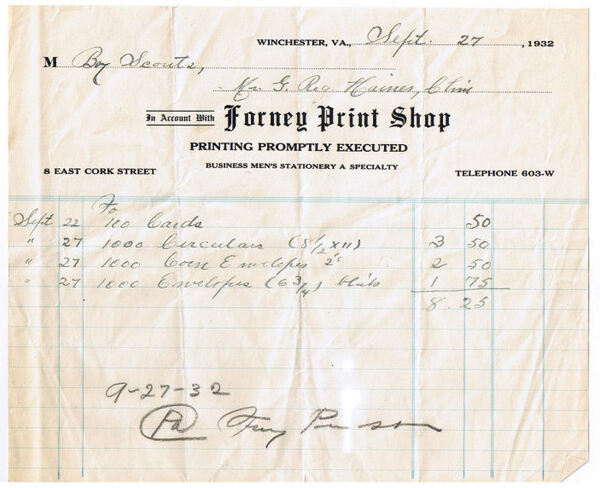 WINCHESTER, VA., Sept. 27, 1932
M Boy Scouts,
Mr. G. Reg. Haines, Chm
In Account With Forney Print Shop
PRINTING PROMPTLY EXECUTED
BUSINESS MEN'S STATIONERY A SPECIALTY
8 EAST CORK STREET TELEPHONE 603-W
To
Sept 22 100 Cards 50
" 27 1000 Circulars (8 1/2 x 11) 3 50
" 27 1000 Coin Envelopes 2's 2 50
" 27 1000 Envelopes (6 3/4) 1 75
8.25
9-27-32
Pd